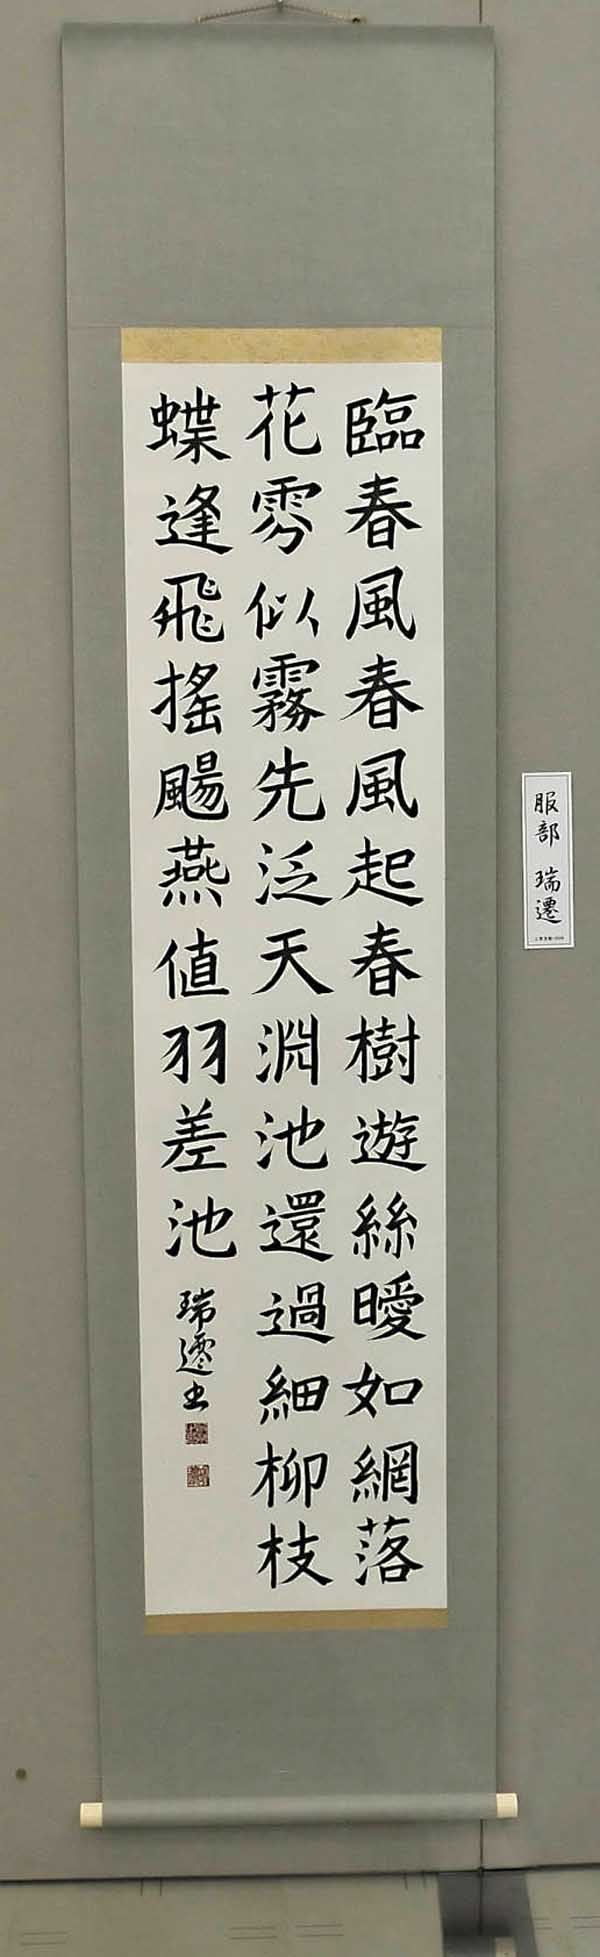 臨春風春風起春樹遊絲曖如網落
花雰似霧先泛天淵池還過細柳枝
蝶逢飛搖颺燕値羽差池
瑞遷書
服部 瑞遷